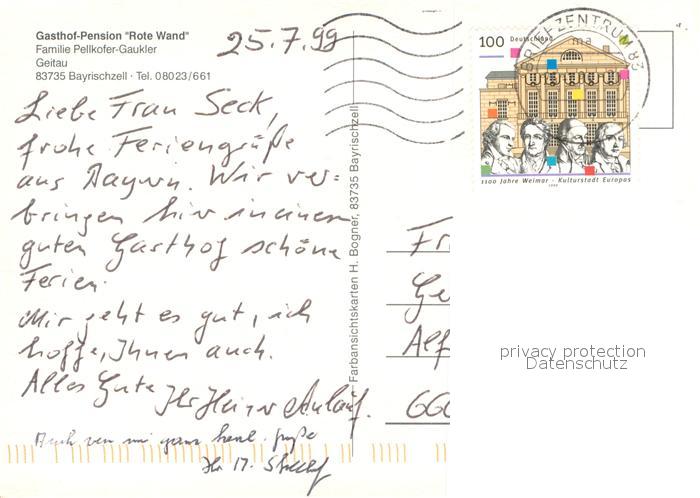 Gasthof-Pension "Rote Wand"
Familie Pellkofer-Gaukler
Geitau
83735 Bayrischzell · Tel. 08023/661
25.7.99
Liebe Frau Seck,
frohe Feriengrüße
aus Bayern. Wir ver=
bringen hier in einem
guten Gasthof schöne
Ferien.
Mir geht es gut, ich
hoffe, Ihnen auch.
Alles Gute
Ihr Heiner Anlauf.
Auch von mir ganz herzl. Grüße
Ihr M.
Farbansichtskarten H. Bogner, 83735 Bayrischzell
BRIEFZENTRUM 83
ma
100 Deutschland
1100 Jahre Weimar - Kulturstadt Europas
1999
Fr
Ge
Alf
660
privacy protection
Datenschutz